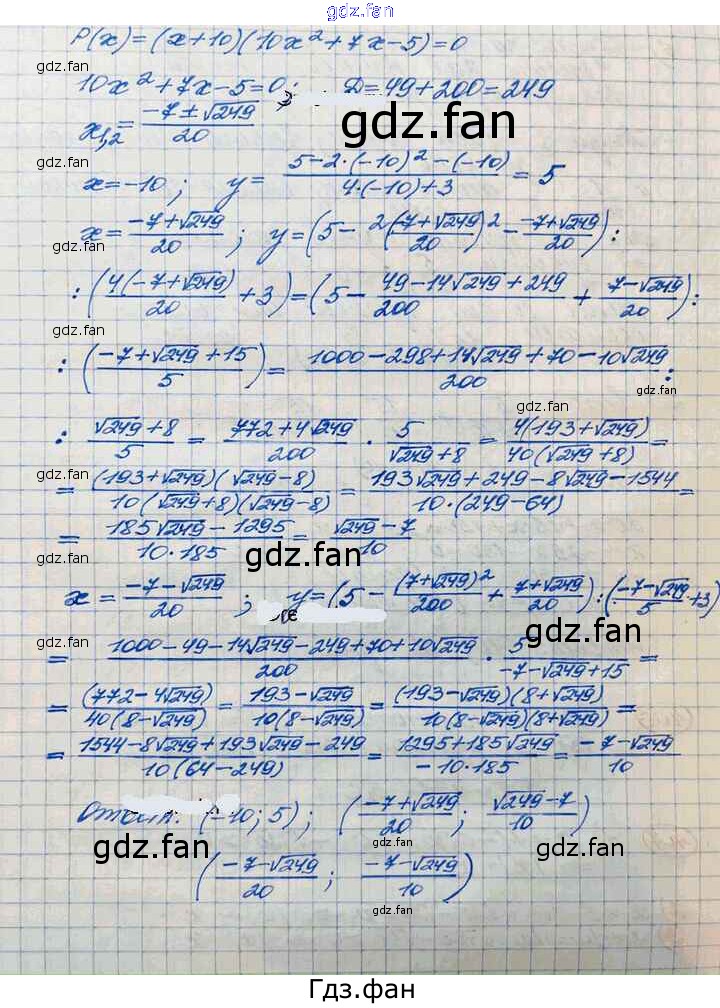 gdz.fan
P(x)=(x+10)(10x²+7x-5)=0
gdz.fan
10x²+7x-5=0; D=49+200=249
x₁,₂=(-7±√249)/20
gdz.fan
gdz.fan
x=-10; y=(5-2·(-10)²-(-10))/(4·(-10)+3)=5
x=(-7+√249)/20; y=(5-2(-7+√249)²/20-(-7+√249)/20):
gdz.fan
:(4(-7+√249)/20+3)=(5-(49-14√249+249)/200+(7-√249)/20):
gdz.fan
:((-7+√249+15)/5)=(1000-298+14√249+70-10√249)/200:
gdz.fan
gdz.fan
:(√249+8)/5=(772+4√249)/200·5/(√249+8)=4(193+√249)/40(√249+8)=
gdz.fan
=(193+√249)(√249-8)/10(√249+8)(√249-8)=(193√249+249-8√249-1544)/10·(249-64)=
=(185√249-1295)/10·185=(√249-7)/10
gdz.fan
gdz.fan
x=(-7-√249)/20; y=(5-(7+√249)²/200+(7+√249)/20):((-7-√249)/5+3)
gdz.fan
=(1000-49-14√249-249+70+10√249)/200·5/(-7-√249+15)=
=(772-4√249)/40(8-√249)=(193-√249)/10(8-√249)=(193-√249)(8+√249)/10(8-√249)(8+√249)=
=(1544-8√249+193√249-249)/10(64-249)=(1295+185√249)/-10·185=(-7-√249)/10
(-10; 5); ((-7+√249)/20; (√249-7)/10)
gdz.fan
gdz.fan
((-7-√249)/20; (-7-√249)/10)
gdz.fan
Гдз.фан